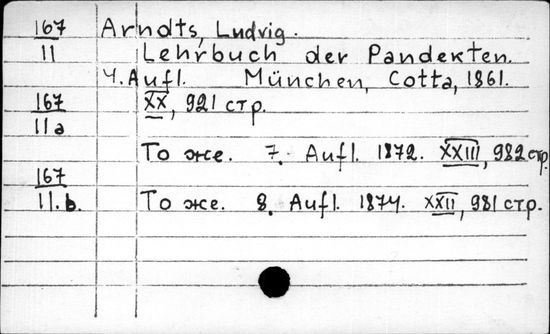 167 Arndts, Ludvig.
11 Lehrbuch der Pandekten.
4. Aufl. München, Cotta, 1861.
167 XX, 921 стр.
11a
То же. 7. Aufl. 1872. XXIII, 982 стр.
167
11.b. То же. 8. Aufl. 1874. XXII, 981 стр.